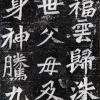 福雲歸洙
世父母及
身神騰九